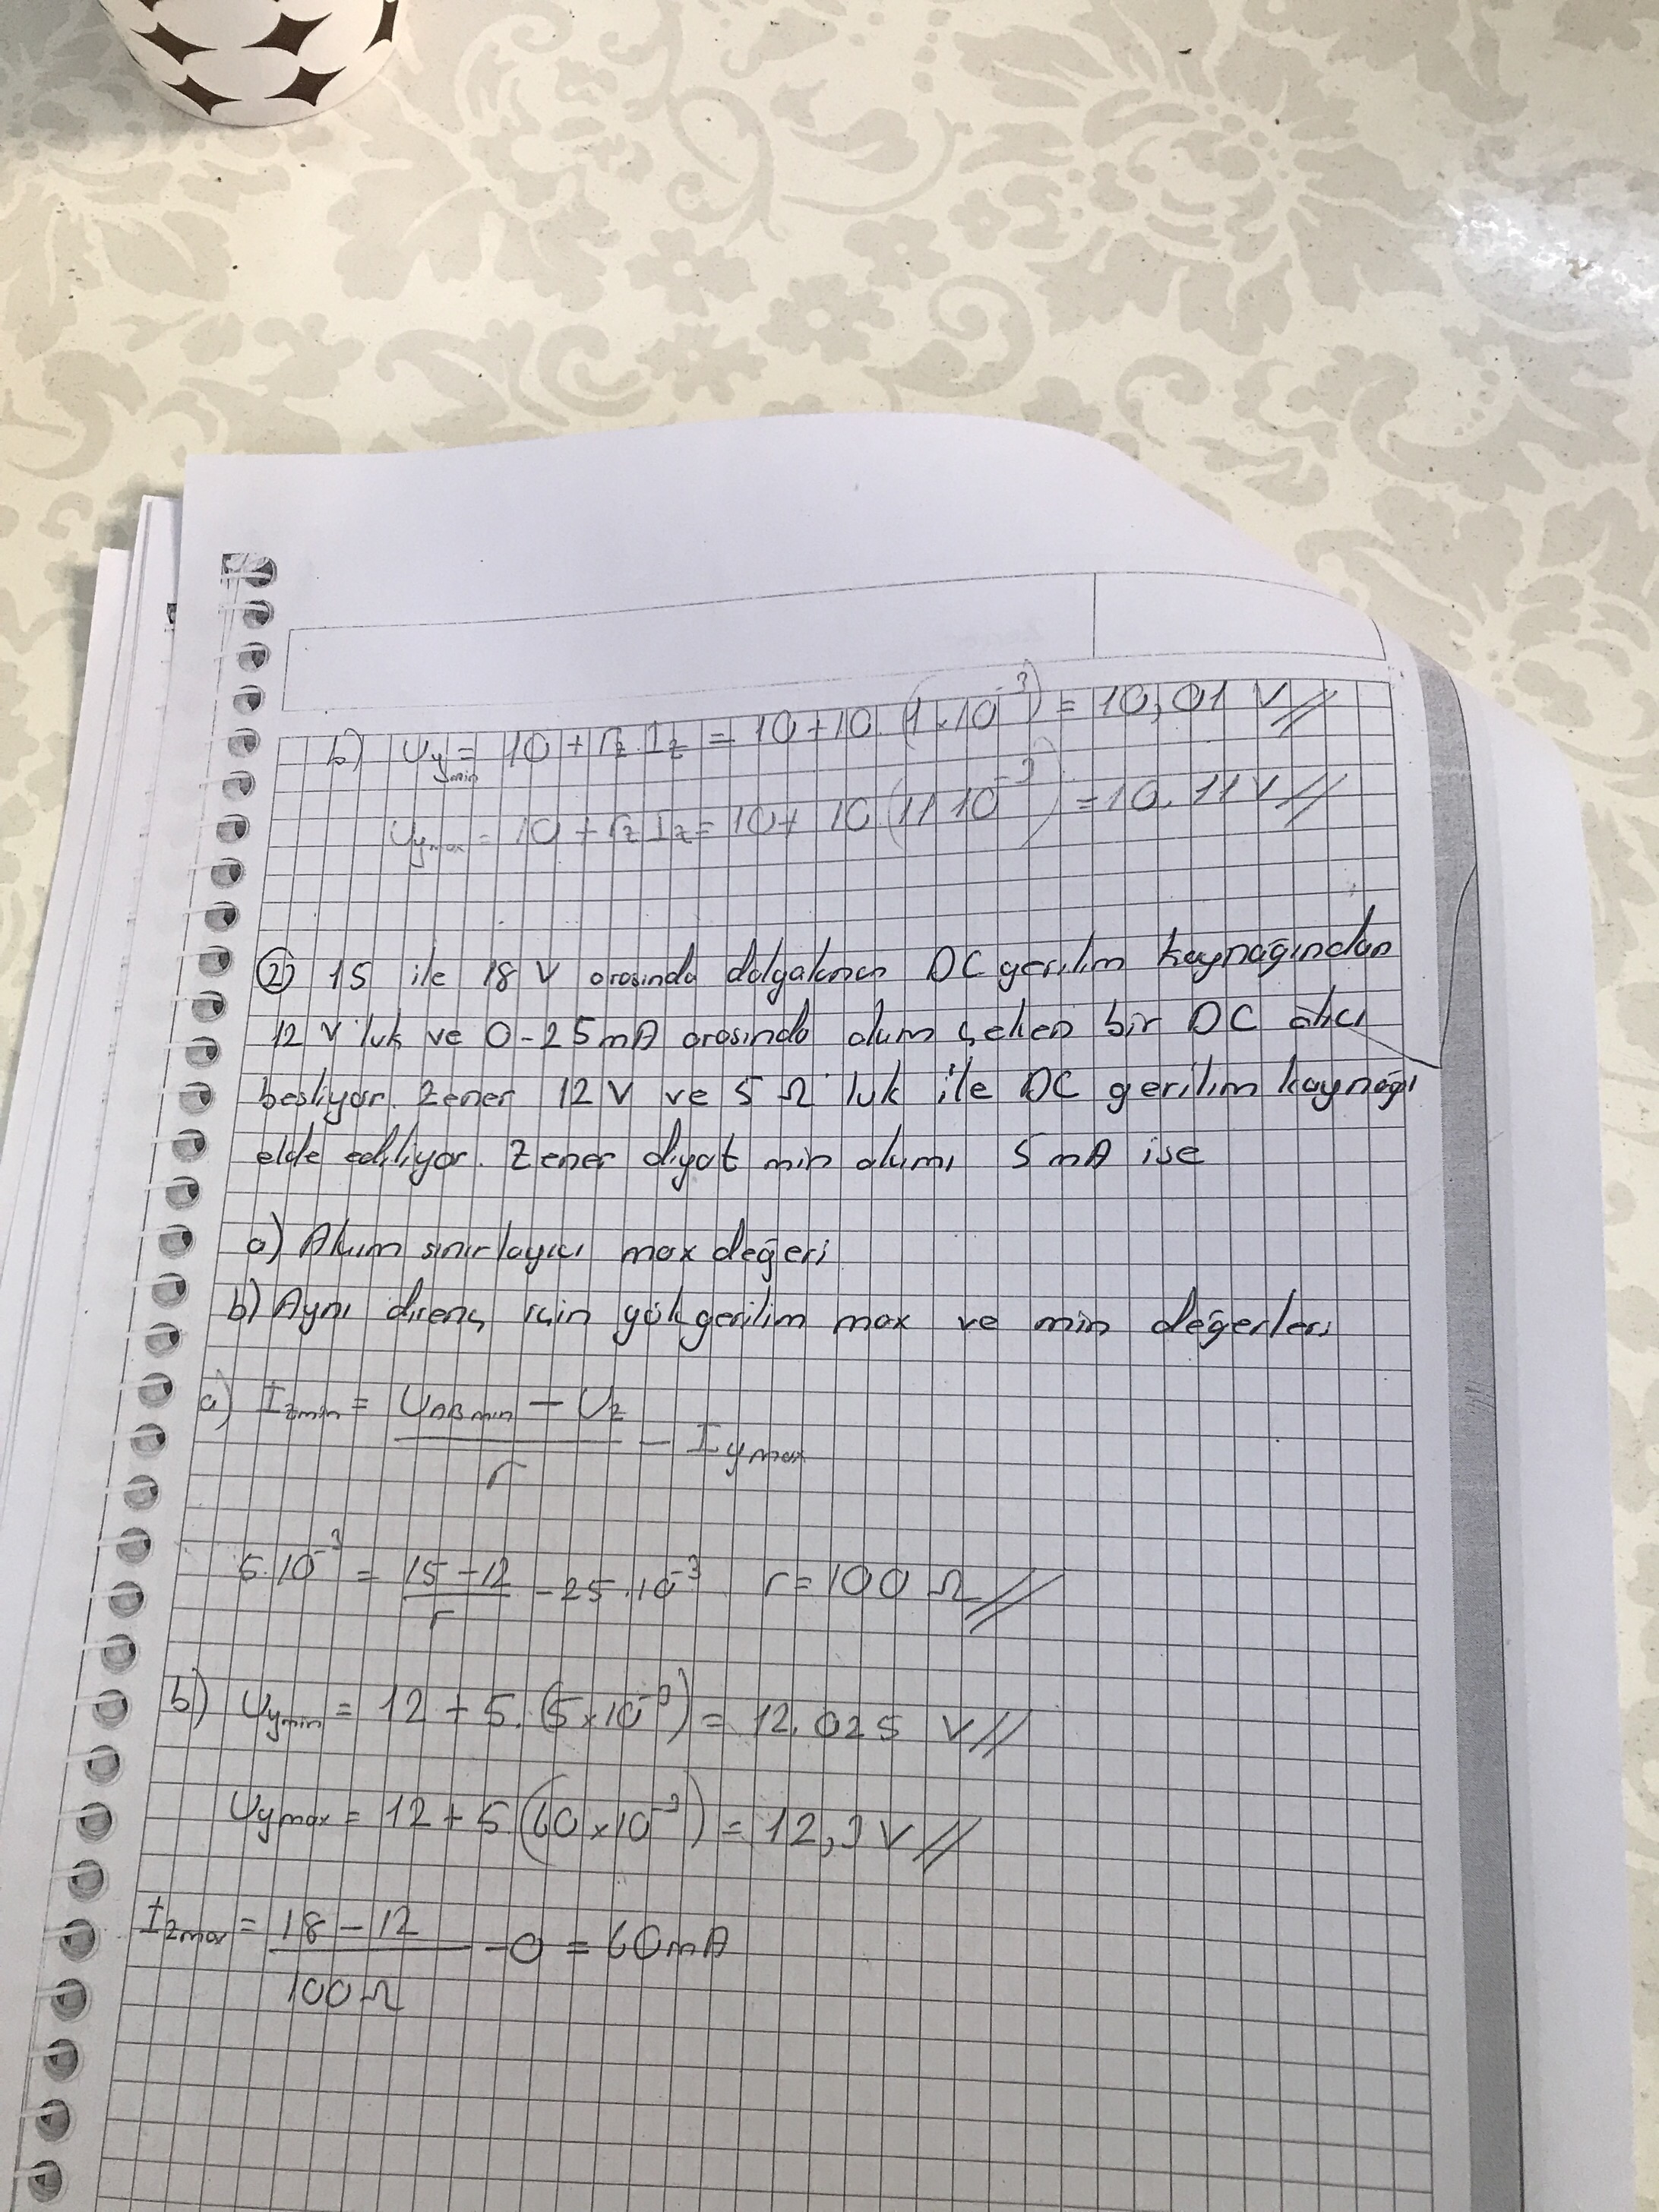 b) Uymin = 10 + rz.Iz = 10+10.(1×10⁻³) = 10,01 V//
Uymax = 10 + rz Iz = 10+ 10(11 10⁻³) = 10.11V//
② 15 ile 18 V arasında dalgalanan DC gerilim kaynağından
12 V'luk ve 0-25mA arasında akım çeken bir DC alıcı
besliyor. Zener 12 V ve 5 Ω'luk ile DC gerilim kaynağı
elde ediliyor. Zener diyot min akımı 5 mA ise
a) Akım sınırlayıcı max değeri
b) Aynı direnç için yükgerilim max ve min değerleri
a) Izmin = (UABmin - Uz)/r - Iymax
5.10⁻³ = (15-12)/r - 25.10⁻³ r=100 Ω//
b) Uymin = 12 + 5.(5×10⁻³) = 12.025 V//
Uymax = 12 + 5.(60×10⁻³) = 12,3 V//
Izmax = (18-12)/100Ω - 0 = 60mA